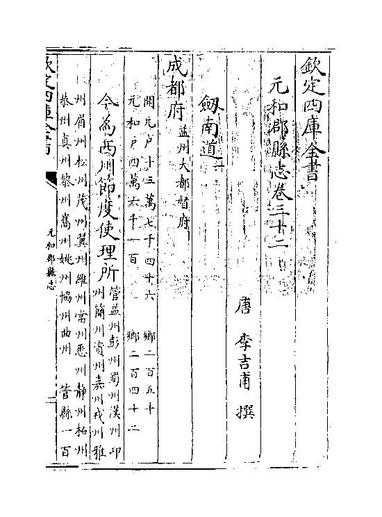 欽定四庫全書
元和郡縣志卷三十二
唐 李吉甫 撰
劔南道
成都府 益州大都督府
開元戶十三萬七千四十六 鄉二百五十
元和戶四萬六千一百 鄉二百四十二
今為西川節度使理所 管益州彭州蜀州漢州卭
州簡州資州嘉州戎州雅
州眉州松州茂州翼州維州當州悉州靜州柘州
恭州真州黎州巂州姚州協州曲州 管縣一百
欽定四庫全書
元和郡縣志